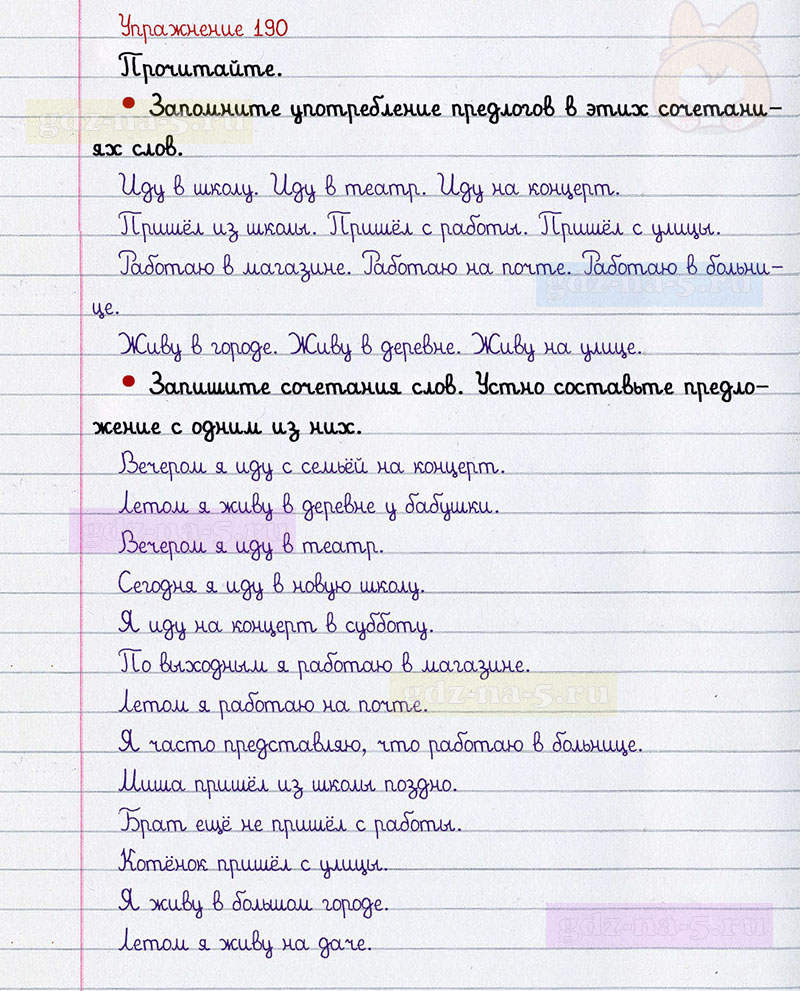 Упражнение 190
Прочитайте.
• Запомните употребление предлогов в этих сочетани-
gdz-na-5.ru
ях слов.
Иду в школу. Иду в театр. Иду на концерт.
Пришёл из школы. Пришёл с работы. Пришёл с улицы.
Работаю в магазине. Работаю на почте. Работаю в больни-
gdz-na-5.ru
це.
Живу в городе. Живу в деревне. Живу на улице.
• Запишите сочетания слов. Устно составьте предло-
жение с одним из них.
Вечером я иду с семьёй на концерт.
Летом я живу в деревне у бабушки.
gdz-na-5.ru
Вечером я иду в театр.
Сегодня я иду в новую школу.
Я иду на концерт в субботу.
По выходным я работаю в магазине.
gdz-na-5.ru
Летом я работаю на почте.
Я часто представляю, что работаю в больнице.
Миша пришёл из школы поздно.
Брат ещё не пришёл с работы.
Котёнок пришёл с улицы.
Я живу в большом городе.
gdz-na-5.ru
Летом я живу на даче.